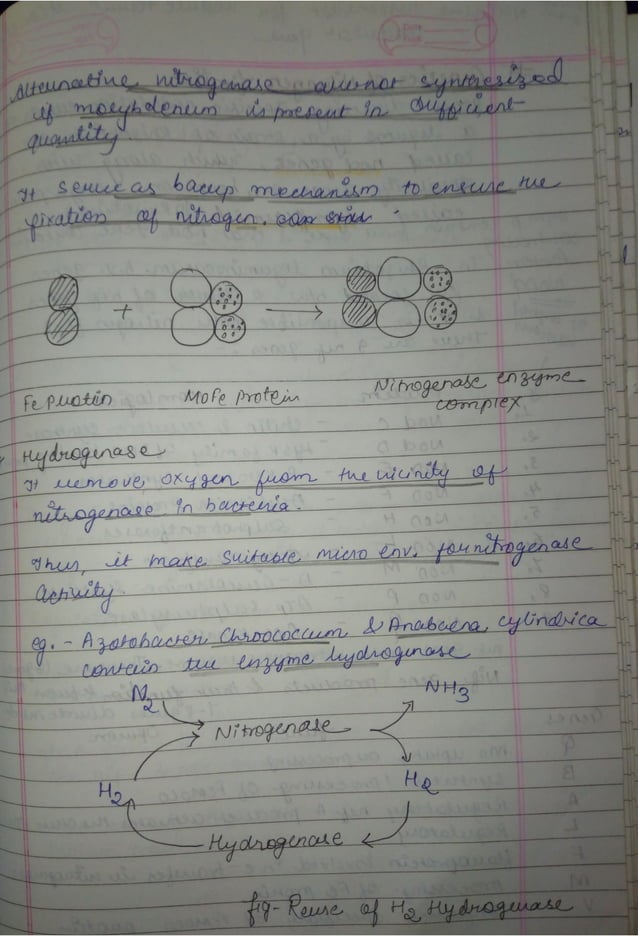 Alternative nitrogenase are not synthesized
if moeybdenum is present in sufficient
quantity.
It serve as bacup mechanism to ensure the
fixation of nitrogen.
+
Fe protein
MoFe Protein
Nitrogenase enzyme
complex
Hydrogenase
It remove oxygen from the vicinity of
nitrogenase in bacteria.
Thus, it make suitable micro env. for nitrogenase
activity.
eg. - Azotobacter Chroococcum & Anabaena cylindrica
contain the enzyme hydrogenase
N2
NH3
Nitrogenase
H2
H2
Hydrogenase
fig- Reuse of H2 Hydrogenase